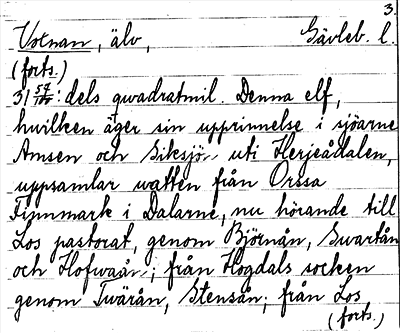 3.
Voxnan, älv, Gävleb. l.
(forts.)
31 57/100: dels qwadratmil. Denna elf,
hwilken äger sin upprinnelse i sjöarne
Amsen och Siksjö uti Herjeådalen,
uppsamlar watten från Orssa
Finnmark i Dalarne, nu hörande till
Los pastorat, genom Björnån, Swartån
och Hofwaån; från Högdals socken
genom Twärån, Stensån; från Los
(forts.)